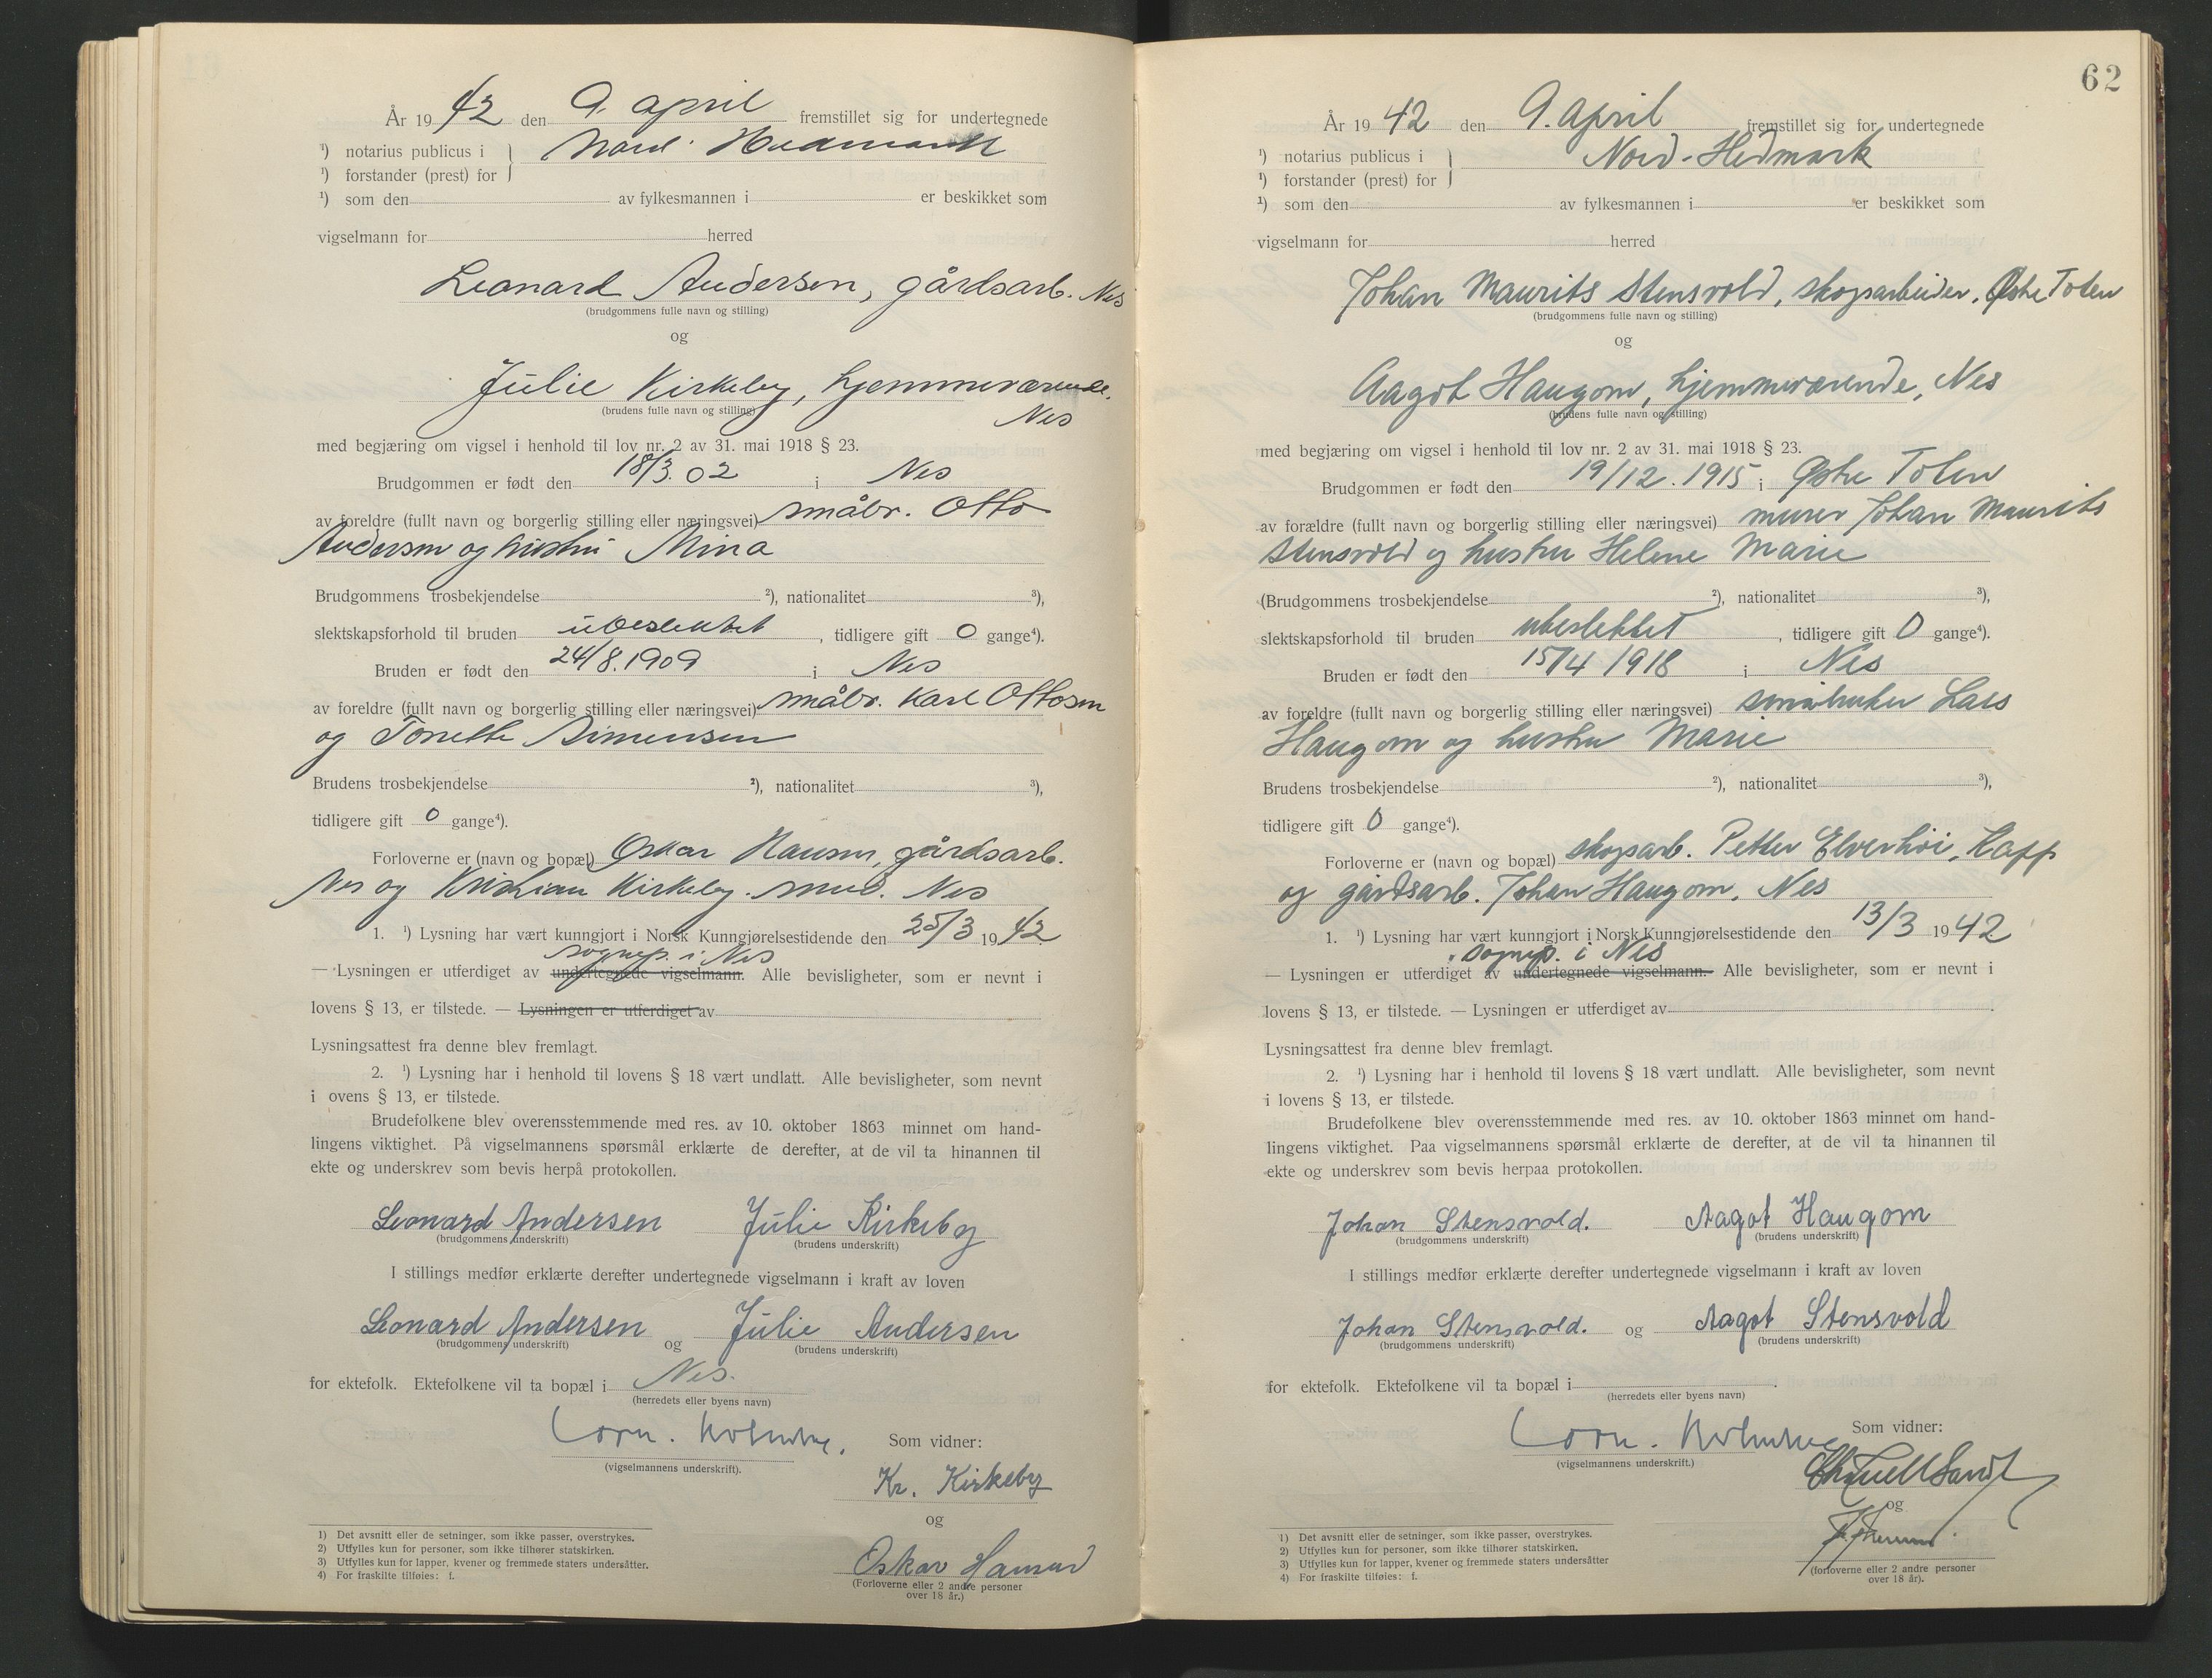 År 1942 den 9. april fremstillet sig for undertegnede
¹) notarius publicus i } Nord-Hedmark
¹) forstander (prest) for
¹) som den av fylkesmannen i er beskikket som
vigselmann for herred
Leonard Andersen, gårdsarb. Nes
(brudgommens fulle navn og stilling)
og
Julie Kirkeby, hjemmeværende.
(brudens fulle navn og stilling)
Nes
med begjæring om vigsel i henhold til lov nr. 2 av 31. mai 1918 § 23.
Brudgommen er født den 18/3. 02 i Nes
av foreldre (fullt navn og borgerlig stilling eller næringsvei) småbr. Otto
Andersen og hustru Mina
Brudgommens trosbekjendelse ²), nationalitet ³),
slektskapsforhold til bruden ubeslektet, tidligere gift 0 gange⁴).
Bruden er født den 24/8. 1909 i Nes
av foreldre (fullt navn og borgerlig stilling eller næringsvei) småbr. Karl Ottosen
og Tonette Simensen
Brudens trosbekjendelse ²), nationalitet ³),
tidligere gift 0 gange⁴).
Forloverne er (navn og bopæl) Oskar Hansen, gårdsarb.
Nes og Kristian Kirkeby. smed. Nes
1. ¹) Lysning har vært kunngjort i Norsk Kunngjørelsestidende den 25/3 1942
sognep. i Nes
— Lysningen er utferdiget av undertegnede vigselmann. Alle bevisligheter, som er nevnt i
lovens § 13, er tilstede. — Lysningen er utferdiget av
Lysningsattest fra denne blev fremlagt.
2. ¹) Lysning har i henhold til lovens § 18 vært undlatt. Alle bevisligheter, som nevnt
i ovens § 13, er tilstede.
Brudefolkene blev overensstemmende med res. av 10. oktober 1863 minnet om hand-
lingens viktighet. På vigselmannens spørsmål erklærte de derefter, at de vil ta hinannen til
ekte og underskrev som bevis herpå protokollen.
Leonard Andersen Julie Kirkeby
(brudgommens underskrift) (brudens underskrift)
I stillings medfør erklærte derefter undertegnede vigselmann i kraft av loven
Leonard Andersen og Julie Andersen
(brudgommens underskrift) (brudens underskrift)
for ektefolk. Ektefolkene vil ta bopæl i Nes.
(herredets eller byens navn)
Corn. Holmboe. Som vidner:
(vigselmannens underskrift).
Kr. Kirkeby
og
Oskar Hansen
(Forloverne eller 2 andre personer
over 18 år.)
1) Det avsnitt eller de setninger, som ikke passer, overstrykes.
2) Utfylles kun for personer, som ikke tilhører statskirken.
3) Utfylles kun for lapper, kvener og fremmede staters undersåtter.
4) For fraskilte tilføies: f.
62
År 1942 den 9. april fremstillet sig for undertegnede
¹) notarius publicus i } Nord-Hedmark
¹) forstander (prest) for
¹) som den av fylkesmannen i er beskikket som
vigselmann for herred
Johan Maurits Stensvold, skogsarbeider, Østre Toten
(brudgommens fulle navn og stilling)
og
Aagot Haugom, hjemmeværende, Nes
(brudens fulle navn og stilling)
med begjæring om vigsel i henhold til lov nr. 2 av 31. mai 1918 § 23.
Brudgommen er født den 19/12. 1915 i Østre Toten
av forældre (fullt navn og borgerlig stilling eller næringsvei) murer Johan Maurits
Stensvold og hustru Helene Marie
(Brudgommens trosbekjendelse ²), nationalitet ³),
slektskapsforhold til bruden ubeslektet, tidligere gift 0 gange⁴).
Bruden er født den 15/4 1918 i Nes
av foreldre (fullt navn og borgerlig stilling eller næringsvei) småbruker Lars
Haugom og hustru Marie
Brudens trosbekjendelse ²), nationalitet ³),
tidligere gift 0 gange⁴).
Forloverne er (navn og bopæl) skogsarb. Petter Elverhøi, Kapp
og gårdsarb. Johan Haugom, Nes
1. ¹) Lysning har vært kunngjort i Norsk Kunngjørelsestidende den 13/3 1942
sognep. i Nes
— Lysningen er utferdiget av undertegnede vigselmann. Alle bevisligheter, som er nevnt i
lovens § 13, er tilstede. — Lysningen er utferdiget av
Lysningsattest fra denne blev fremlagt.
2. ¹) Lysning har i henhold til lovens § 18 vært undlatt. Alle bevisligheter, som nevnt
i lovens § 13, er tilstede.
Brudefolkene blev overensstemmende med res. av 10. oktober 1863 minnet om hand-
lingens viktighet. Paa vigselmannens spørsmål erklærte de derefter, at de vil ta hinannen til
ekte og underskrev som bevis herpaa protokollen.
Johan Stensvold. Aagot Haugom
(brudgommens underskrift) (brudens underskrift)
I stillings medfør erklærte derefter undertegnede vigselmann i kraft av loven
Johan Stensvold. og Aagot Stensvold
(brudgommens underskrift) (brudens underskrift)
for ektefolk. Ektefolkene vil ta bopæl i
(herredets eller byens navn)
Corn. Holmboe Som vidner:
(vigselmannens underskrift.)
og
(forloverne eller 2 andre personer
over 18 år).
1) Det avsnitt eller de setninger, som ikke passer, overstrykes.
2) Utfylles kun for personer, som ikke tilhører statskirken.
3) Utfylles kun for lapper, kvener og fremmede staters undersåtter
4) For fraskilte tilføies: f.